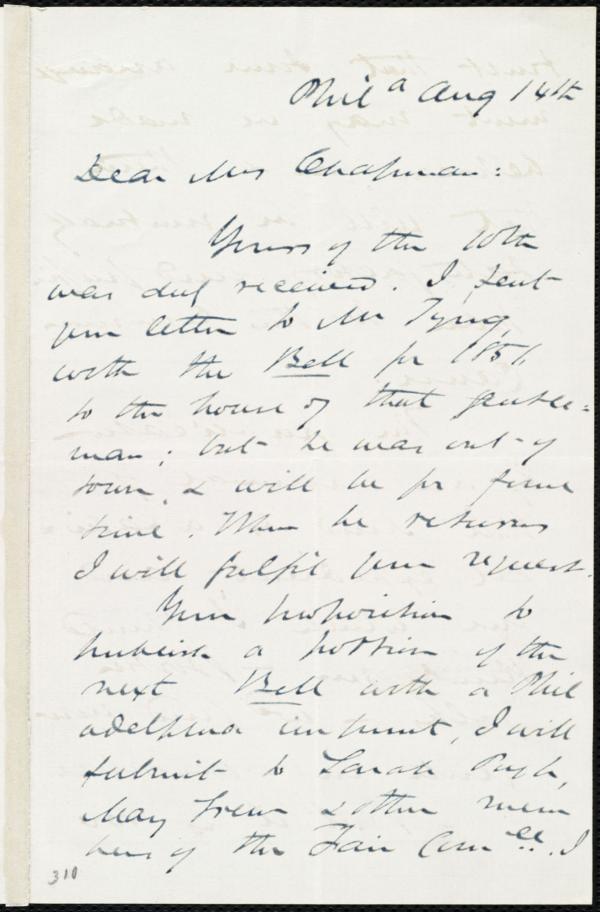 Phila Aug 14th
Dear Mrs Chapman:
Yours of the 10th
was duly received. I sent
your letter to Mr Tyng,
with the Bell for 1851,
to the house of that gentle=
man; but he was out of
town, & will be for some
time. When he returns
I will fulfil your request.
Your proposition to
publish a portion of the
next Bell with a Phil
adelphia imprint, I will
submit to Sarah Pugh,
May Grew & other mem
bers of the Fair Comee. I
310